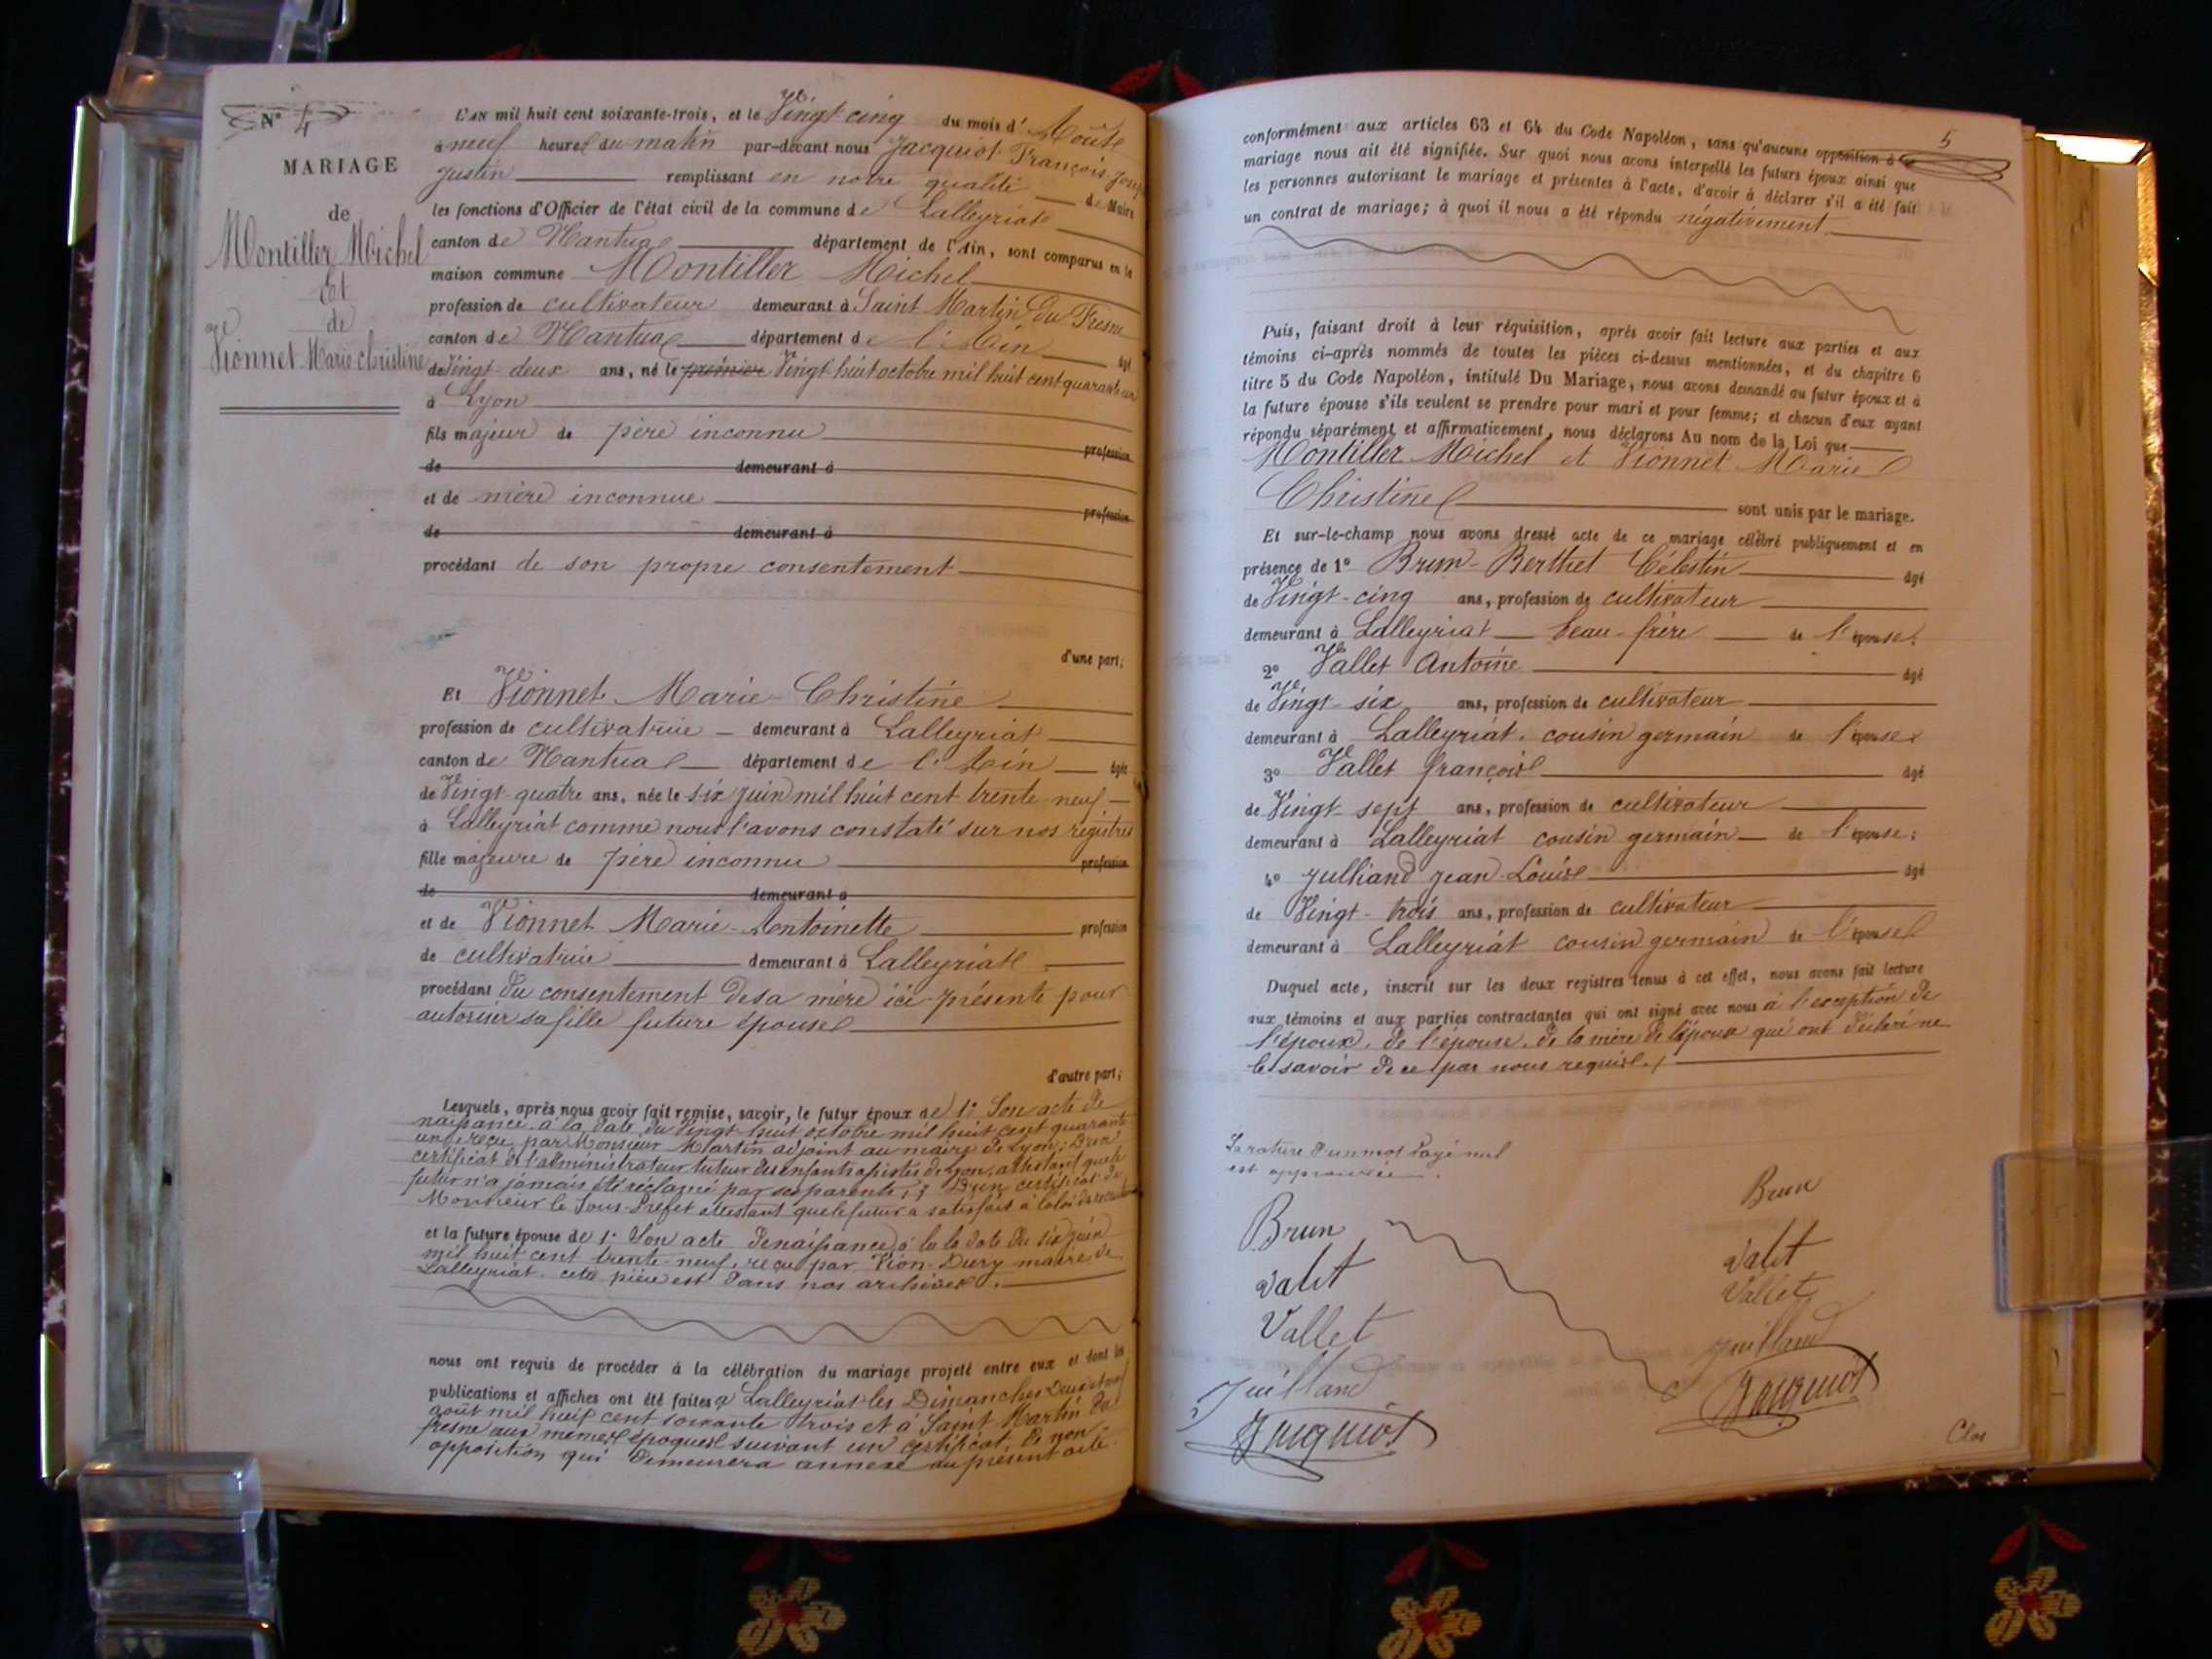 N° 4
MARIAGE
de
Montiller Michel
Et
de
Vionnet Marie Christine
L'AN mil huit cent soixante-trois, et le Vingt cinq du mois d' Août
à neuf heures du matin par-devant nous Jacquiot François Joseph
Justin remplissant en notre qualité de Maire
les fonctions d'Officier de l'état civil de la commune de Lalleyriat
canton de Nantua département de l'Ain, sont comparus en la
maison commune Montiller Michel
profession de cultivateur demeurant à Saint Martin du Fresne
canton de Nantua département de l'Ain âgé
de Vingt-deux ans, né le premier Vingt huit octobre mil huit cent quarante un
à Lyon
fils majeur de père inconnu profession
de demeurant à
et de mère inconnue profession
de demeurant à
procédant de son propre consentement
d'une part;
Et Vionnet Marie-Christine
profession de cultivatrice demeurant à Lalleyriat
canton de Nantua département de l'Ain âgée
de Vingt-quatre ans, née le six juin mil huit cent trente-neuf
à Lalleyriat comme nous l'avons constaté sur nos registres
fille majeure de père inconnu profession
de demeurant à
et de Vionnet Marie-Antoinette profession
de cultivatrice demeurant à Lalleyriat
procédant du consentement de sa mère ici présente pour
autoriser sa fille future épouse
d'autre part;
Lesquels, après nous avoir fait remise, savoir, le futur époux de 1° Son acte de
naissance à la date du Vingt huit octobre mil huit cent quarante
un, reçu par Monsieur Martin adjoint au maire de Lyon; D'un
certificat de l'administrateur tuteur des enfants assistés de Lyon, attestant que le
futur n'a jamais été réclamé par ses parents; 3° D'un certificat de
Monsieur le Sous-Préfet attestant que le futur a satisfait à la loi de
et la future épouse de 1° Son acte de naissance à la date du six juin
mil huit cent trente-neuf, reçu par Vion-Dury maire de
Lalleyriat. cette pièce est dans nos archives.
nous ont requis de procéder à la célébration du mariage projeté entre eux et dont les
publications et affiches ont été faites à Lalleyriat les Dimanches Deux et neuf
août mil huit cent soixante trois et à Saint Martin du
fresne aux mêmes époques suivant un certificat de non
opposition qui demeurera annexé au présent acte.
5
conformément aux articles 63 et 64 du Code Napoléon, sans qu'aucune opposition à ce
mariage nous ait été signifiée. Sur quoi nous avons interpellé les futurs époux ainsi que
les personnes autorisant le mariage et présentes à l'acte, d'avoir à déclarer s'il a été fait
un contrat de mariage; à quoi il nous a été répondu négativement.
Puis, faisant droit à leur réquisition, après avoir fait lecture aux parties et aux
témoins ci-après nommés de toutes les pièces ci-dessus mentionnées, et du chapitre 6
titre 5 du Code Napoléon, intitulé Du Mariage, nous avons demandé au futur époux et à
la future épouse s'ils veulent se prendre pour mari et pour femme; et chacun d'eux ayant
répondu séparément et affirmativement, nous déclarons Au nom de la Loi que
Montiller Michel et Vionnet Marie
Christine sont unis par le mariage.
Et sur-le-champ nous avons dressé acte de ce mariage célébré publiquement et en
présence de 1° Brun-Berthet Célestin âgé
de Vingt-cinq ans, profession de cultivateur
demeurant à Lalleyriat beau-frère de l'épouse.
2° Vallet Antoine âgé
de Vingt-six ans, profession de cultivateur
demeurant à Lalleyriat. cousin germain de l'épouse
3° Vallet françois âgé
de Vingt-sept ans, profession de cultivateur
demeurant à Lalleyriat cousin germain de l'épouse;
4° Julliand Jean-Louis âgé
de Vingt-trois ans, profession de cultivateur
demeurant à Lalleyriat cousin germain de l'épouse
Duquel acte, inscrit sur les deux registres tenus à cet effet, nous avons fait lecture
aux témoins et aux parties contractantes qui ont signé avec nous à l'exception de
l'époux, de l'épouse, de la mère de l'époux qui ont déclaré ne
le savoir de ce par nous requis.
La rature d'un mot rayé nul
est approuvée.
Brun
Brun
Valet
Valet
Vallet
Vallet
Juilland
Juilland
Jacquiot
Jacquiot
Clos